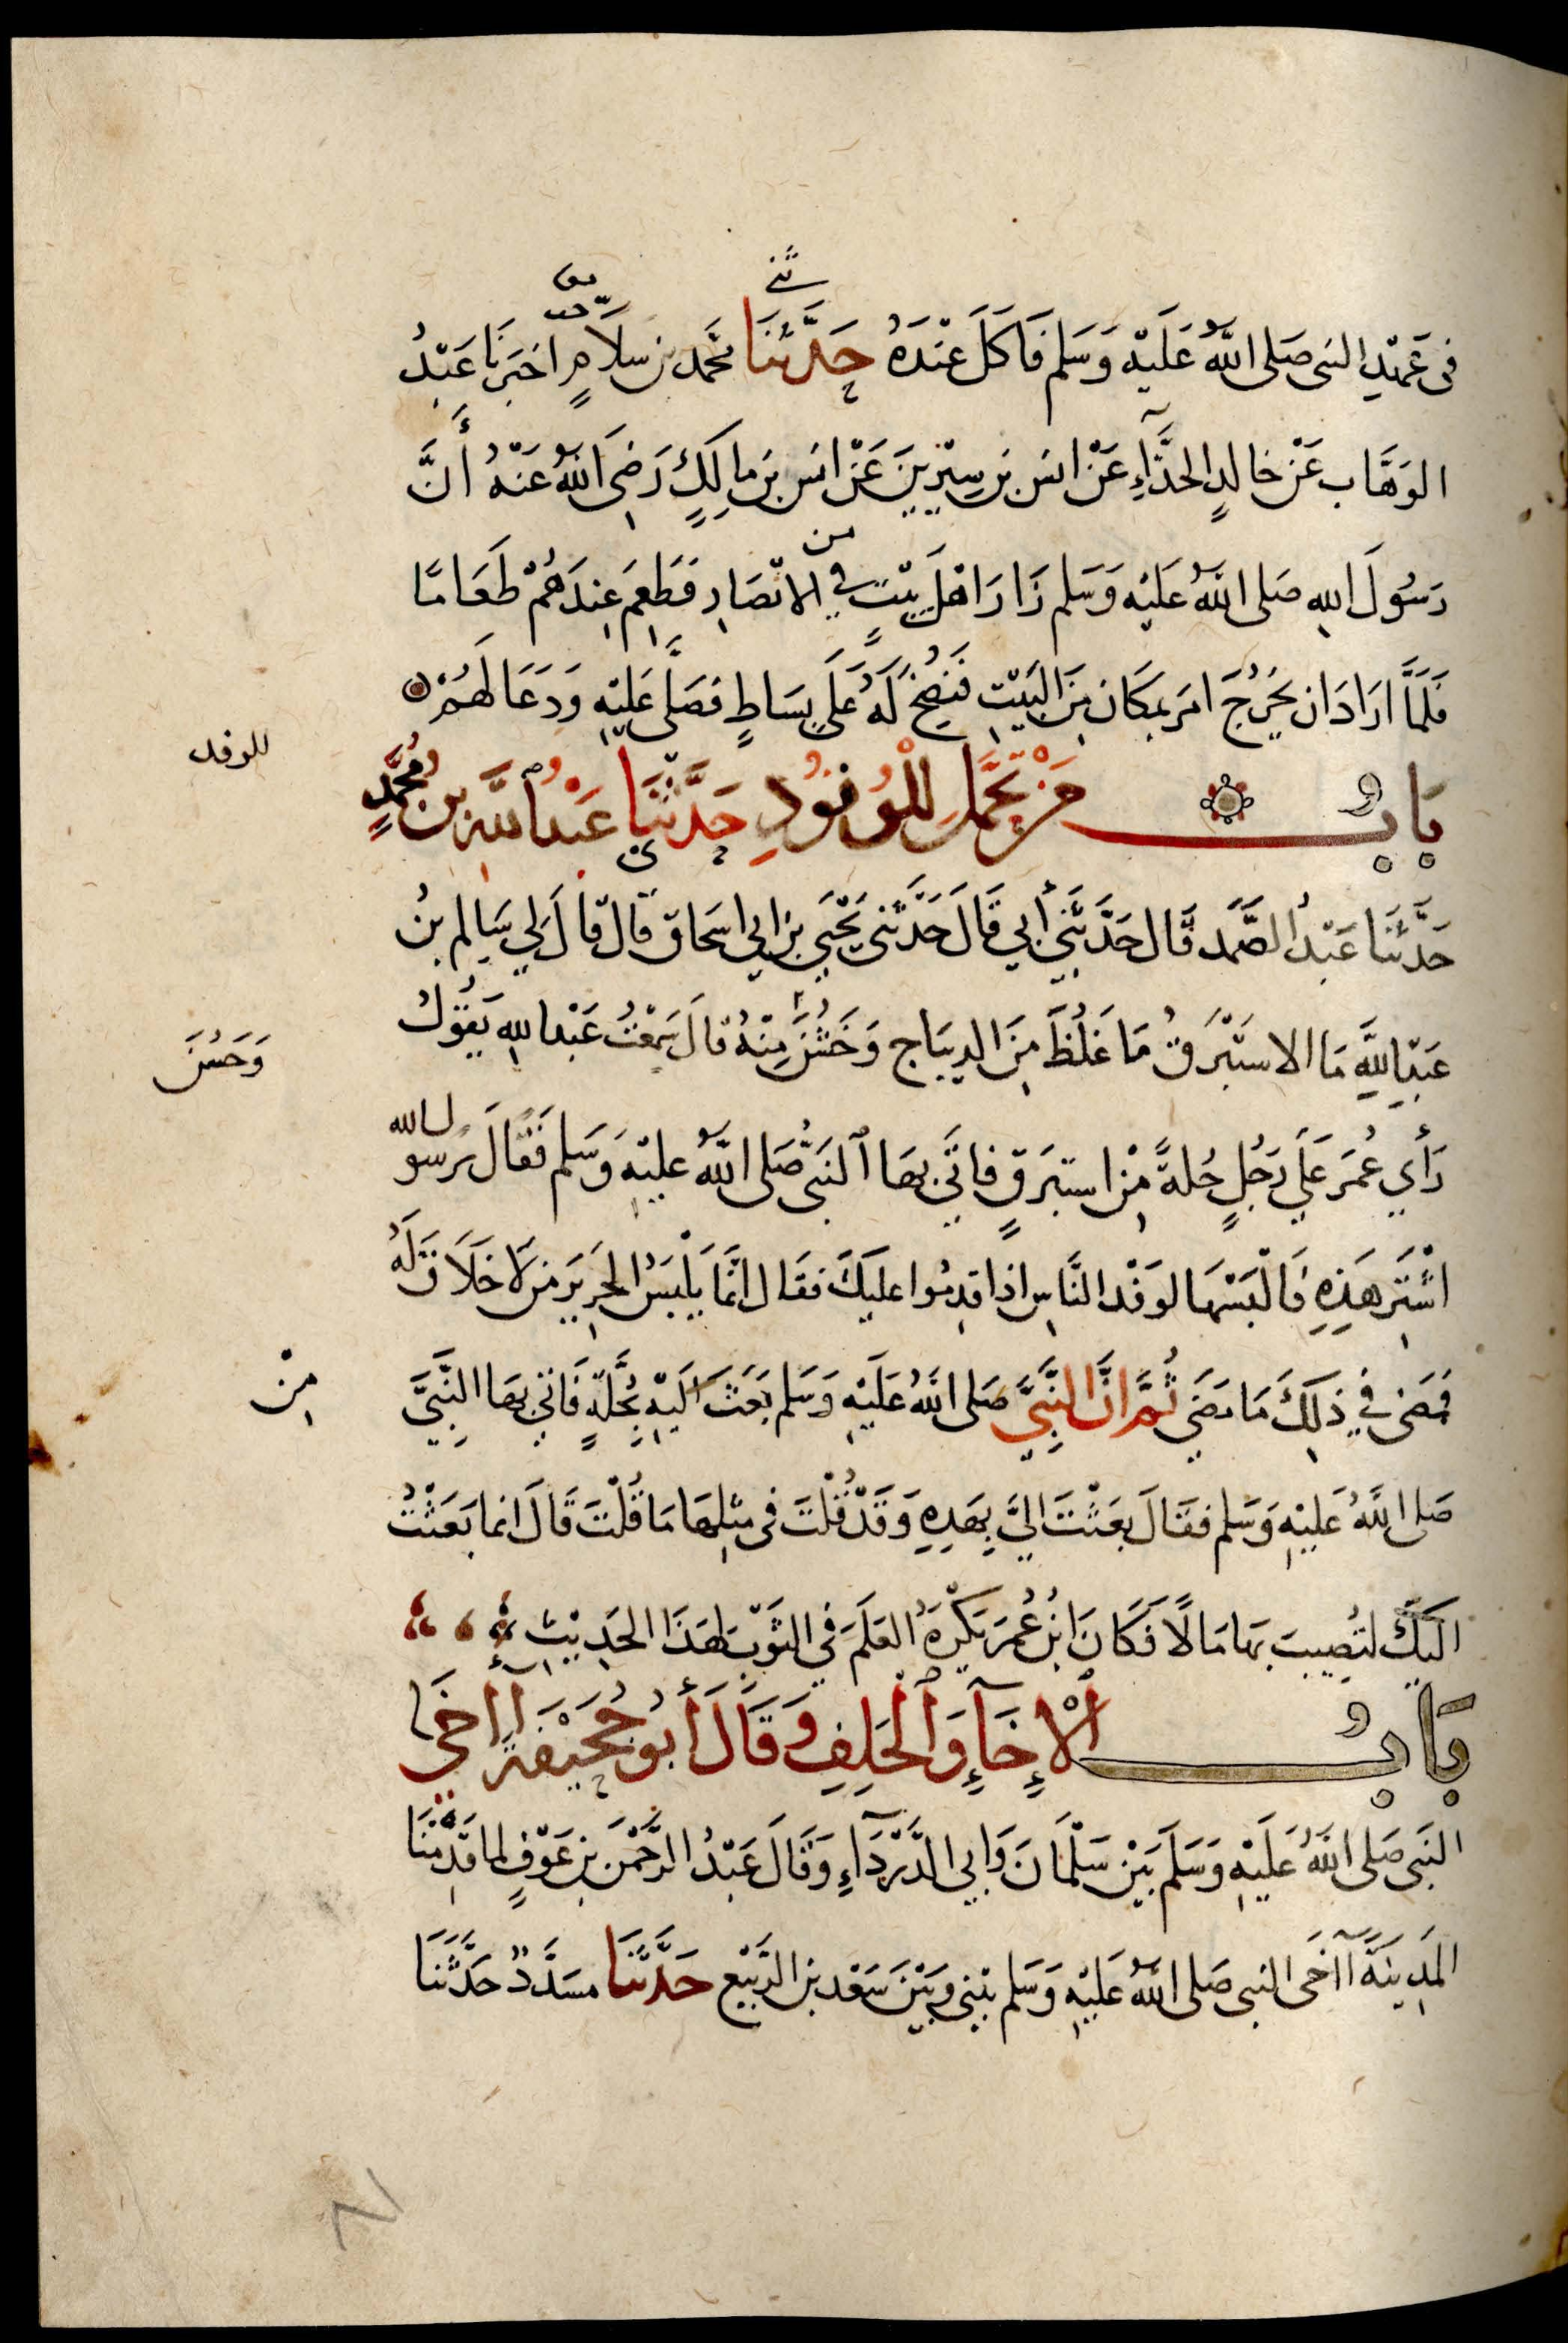 ثني
في عَهْدِ النبي صَلى اللهُ عَلَيْهِ وَسَلم فَاكَلَ عِنْدَهُ حَدَّثَنَا محَمد بن سَلَامٍ اخبَرَنَا عَبْدُ
الوَهَّاب عَنْ خالدٍ الحذَّاءِ عَنْ انس بن سِيْرِينَ عَنْ انس بن مالِكٍ رَضِيَ اللهُ عَنْهُ أَنَّ
من
رَسُولَ اللهِ صَلى اللهُ عَلَيْهِ وَسَلم زَارَ اهْلَ بَيْتٍ في الانْصَارِ فَطَعِمَ عِندَهُمْ طَعَامًا
فَلَمَّا ارَادَ ان يَخْرُجَ امَرَ بمَكَان مِنَ البَيْتِ فَنُضِحَ لَهُ عَلَى بِسَاطٍ فَصَلَّى عَلَيْهِ وَدَعَا لَهُمْ
للوفد
بَابُ مَنْ تَجَمَّلَ لِلْوُفُودِ حَدَّثَنَا عَبْدُ اللَّهِ بن مُحَمَّدٍ
حَدَّثَنَا عَبْدُ الصَّمَد قَال حَدَّثَنِي أَبي قَالَ حَدَّثَنى يَحْيَى بن ابي اسحَاق قَال قالَ لِي سَالِم بنُ
عَبْدِاللَّهِ مَا الاستَبْرَقُ مَا غَلُظَ مِنَ الدِيبَاج وَخَشُنَ مِنْهُ قالَ سَمِعْتُ عَبْدالله يَقُولُ
وَحَسُنَ
رَأَي عُمَرَ عَلَي رَجُلٍ حُلةً مِنْ استبرَقٍ فاتَى بهَا ٱلنَبيَّ صَلى اللهُ عليْهِ وَسَلم فَقَالَ يرسول الله
اشْتَرِ هَذِهِ فَالْبَسْهَا لوَفْد النَّاسِ اذا قدِمُوا عليكَ فقَال انَّمَا يَلْبَسُ الحَرِيرَ مَن لَا خَلَاقَ لَهُ
فمَضى في ذلِكَ مَا مَضَي ثُمَّ انَّ النَّبِيَّ صَلى اللهُ عَلَيْهِ وَسَلم بَعَثَ اليْهِ بحُلَّةٍ فَاتي بهَا النَّبِيَّ
مِنْ
صَلى اللهُ عَلَيْهِ وَسَلم فقَالَ بعَثْتَ اليَّ بِهَذِهِ وَقَدْ قُلْتَ فى مِثلِهَا مَا قُلْتَ قَالَ انما بَعَثْتُ
اليكَ لتُصِيبَ بهَا مَالًا فَكَانَ ابْنُ عُمَرَ يَكْرَهُ العَلَمَ في الثَوْبِ لهَذَا الحَدِيْثِ
بَابُ ٱلْاِخَآءِ وَٱلْحَلِفِ وَقَالَ أَبُو جُحَيْفَةَ آأخَي
النَبى صَلى اللهُ عَلَيْهِ وَسَلَمَ بَيْن سَلْمَانَ وَابي الدَّرْدَآءِ وَقَالَ عَبْدُ الرَّحْمَنِ بن عَوْفٍ لما قَدِمْنَا
المَدِينَةَ آاخَى النبى صَلى اللهُ عَلَيْهِ وَسَلم بيْنى وَبَيْنَ سَعْد بن الرَّبيْع حَدَّثنَا مسَدَّدٌ حَدَّثَنَا